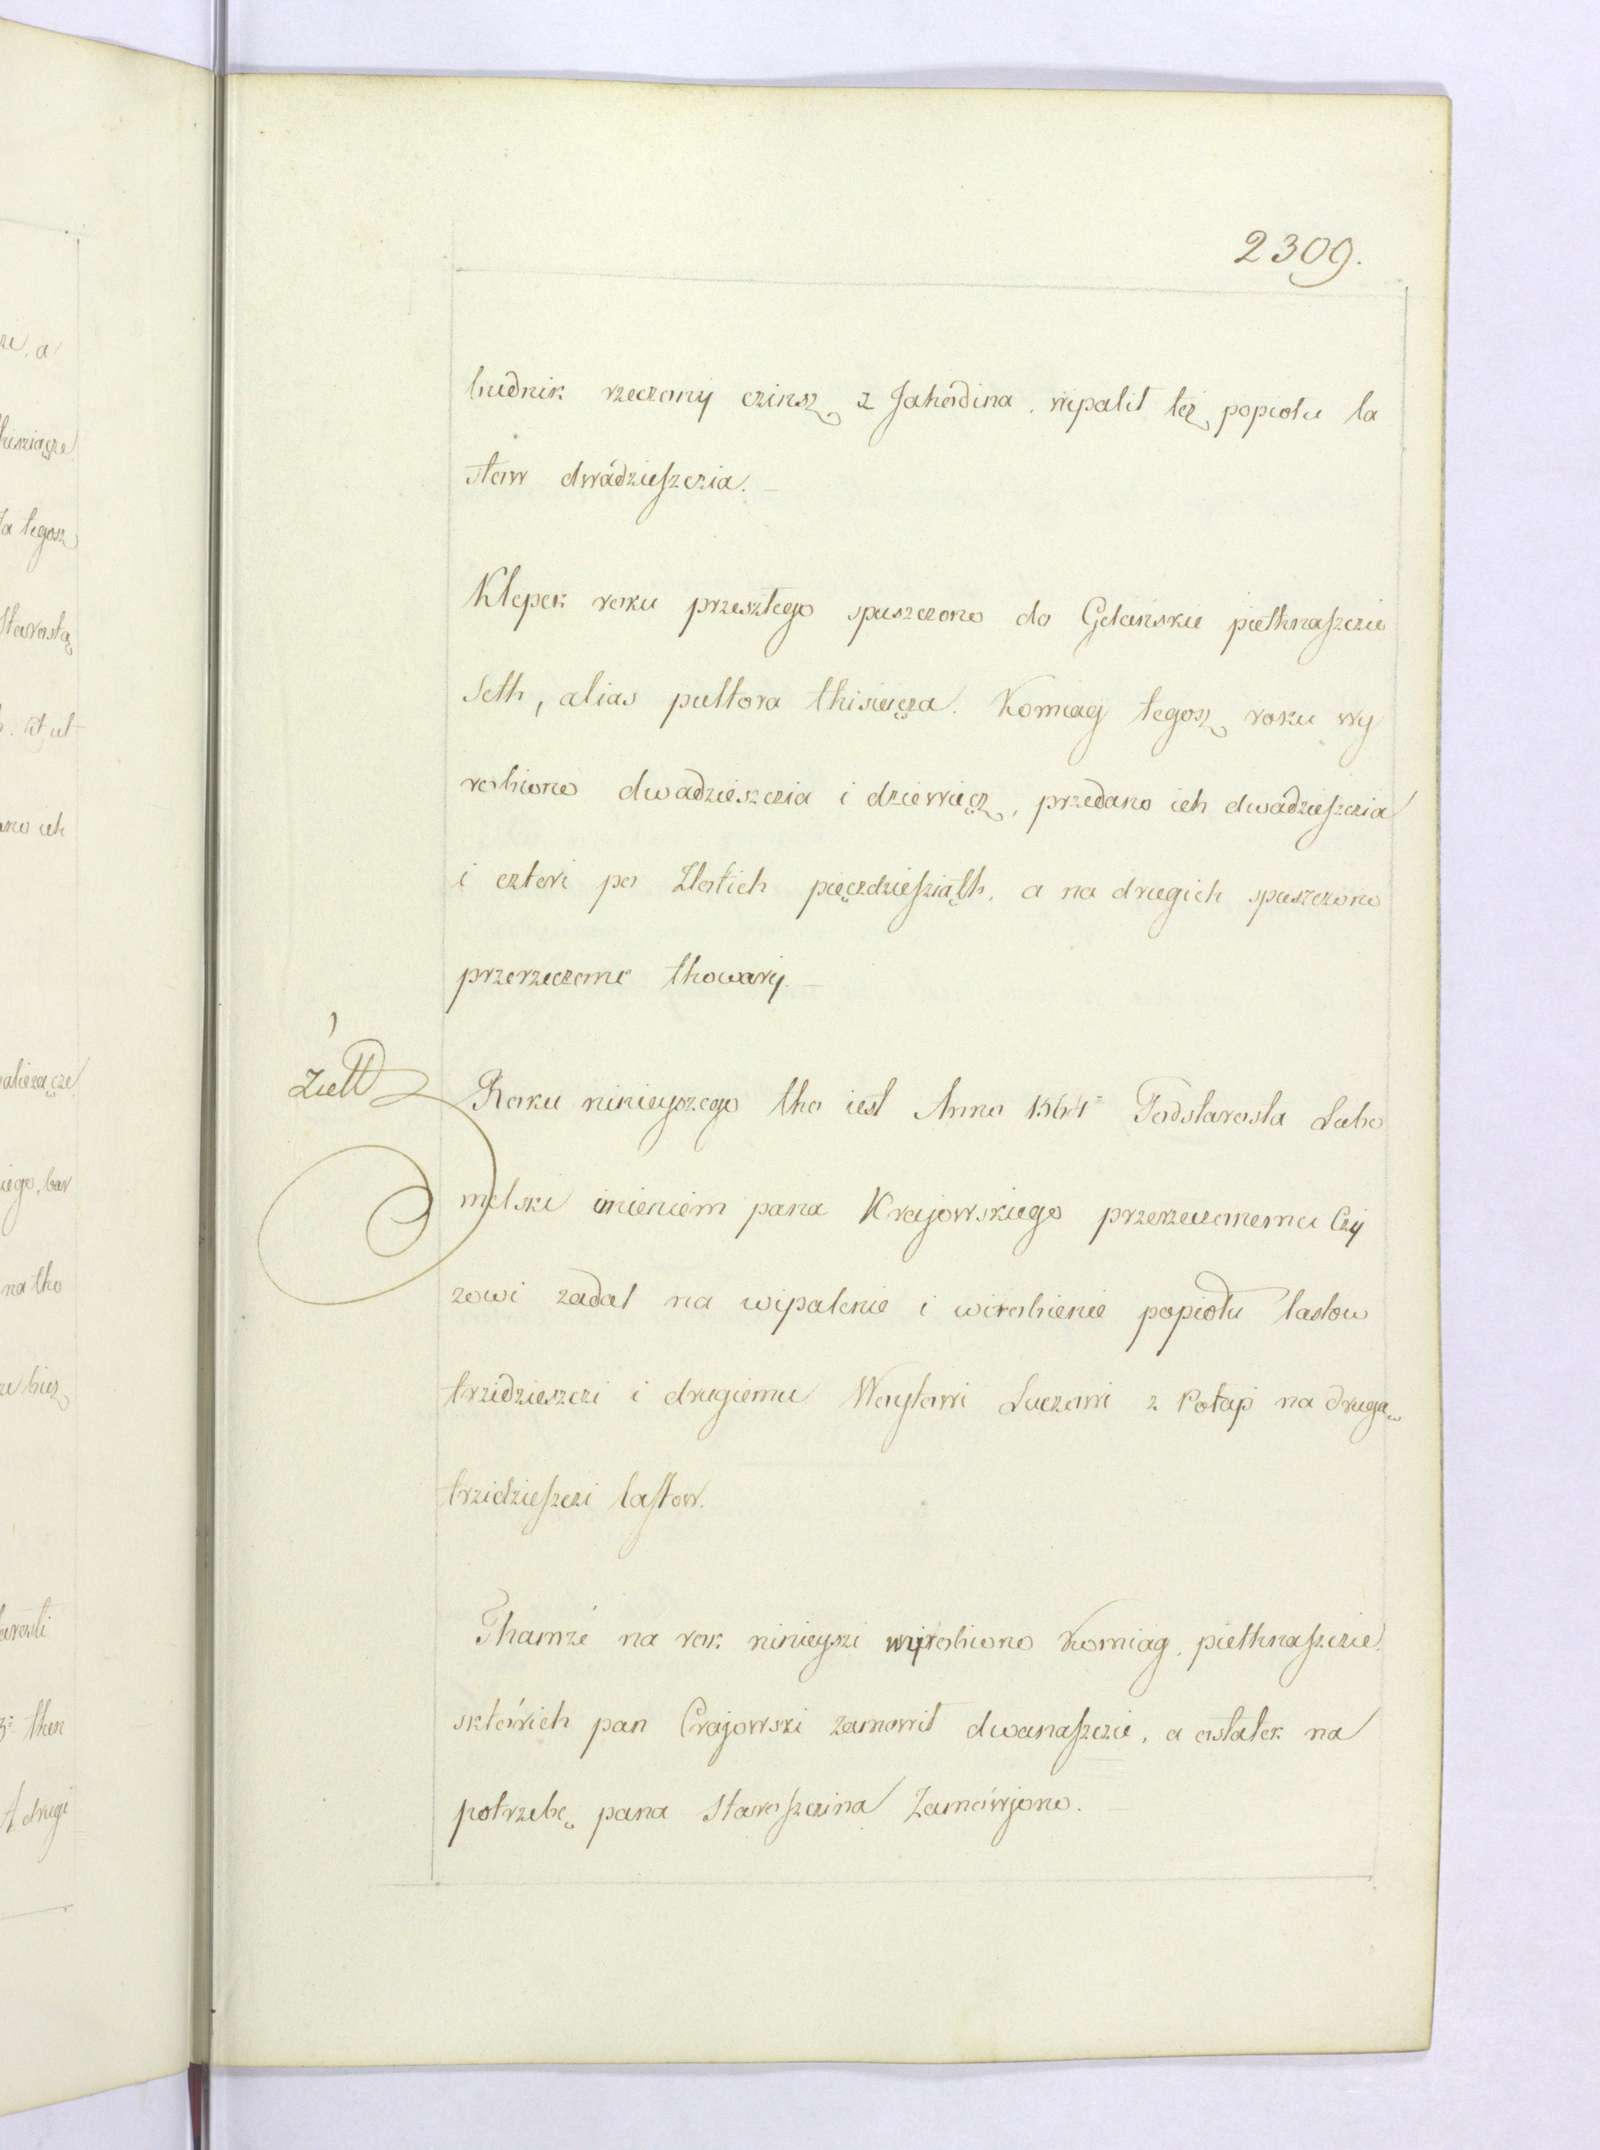 2309.
budnik rzeczony czinsz z Jahodina, wipalil tez popiołu la
stow dwadzieszczia.
Klepek roku przeszłego spuszczono do Gdańsku piethnaszczie
seth, alias pultora thisięcza. Komiag tegosz roku wy
robiono dwadzieszczia i dziewięcz, przedano ich dwadzieszczia
i cztori po Złotich pięczdziesziąth, a na drugich spuszczono
przerzeczone thowary.
Roku ninieyszego tho iest Anno 1564 Podstarosta Lubo
melski imieniem pana Krajowskiego przerzeczonemu Czy
zowi zadal na wipalenie i wirobienie popiołu lastow
trzidzieszczi i drugiemu Woytowi Luczowi z Połap na drugą
trzidzieszczi lastow.
Thamze na rok ninieyszi wyrobiono Komiag piethnaszczie,
sktorich pan Crajowski zamowił dwanaszczie, a ostatek na
potrzebę pana Staroszczina Zamówjono.
ze, a
thisziącze
Ja tegosz
Starostą
ano ich
iego, bar
na tho
arosti
then
A drugi